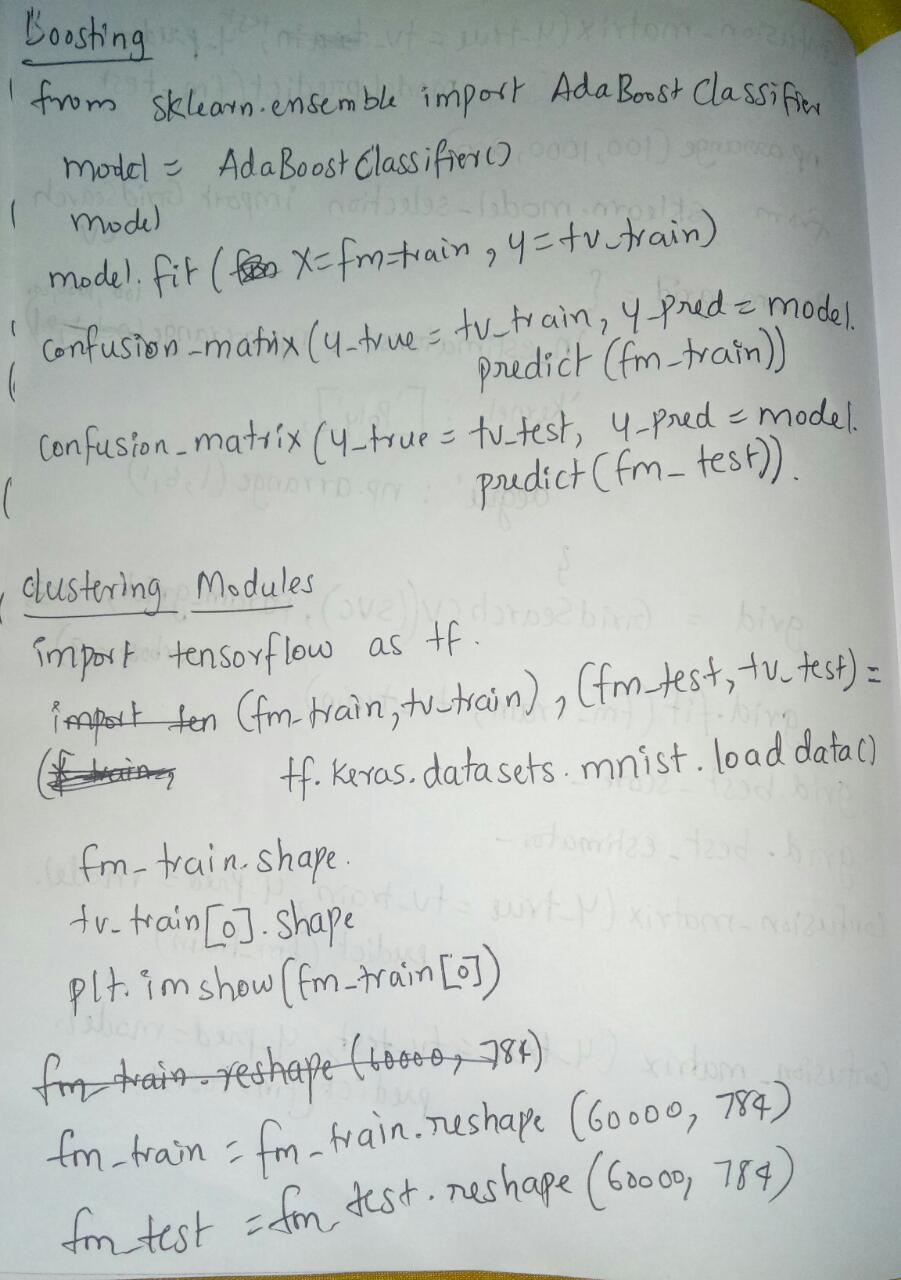 Boosting
from sklearn.ensemble import AdaBoost Classifier
model = AdaBoost Classifier()
model
model.fit ( X=fm-train, y=tv_train)
confusion_matrix (y_true = tv_train, y_pred = model.
predict (fm_train))
confusion_matrix (y_true = tv_test, y_pred = model.
predict (fm_test)).
clustering Modules
import tensorflow as tf.
import ten (fm_train, tv_train), (fm_test, tv_test) =
tf.keras.datasets.mnist.load data()
fm_train.shape.
tv_train[0].shape
plt.imshow(fm_train[0])
fm_train.reshape (60000, 784)
fm_train = fm_train.reshape (60000, 784)
fm_test = fm_test.reshape (60000, 784)